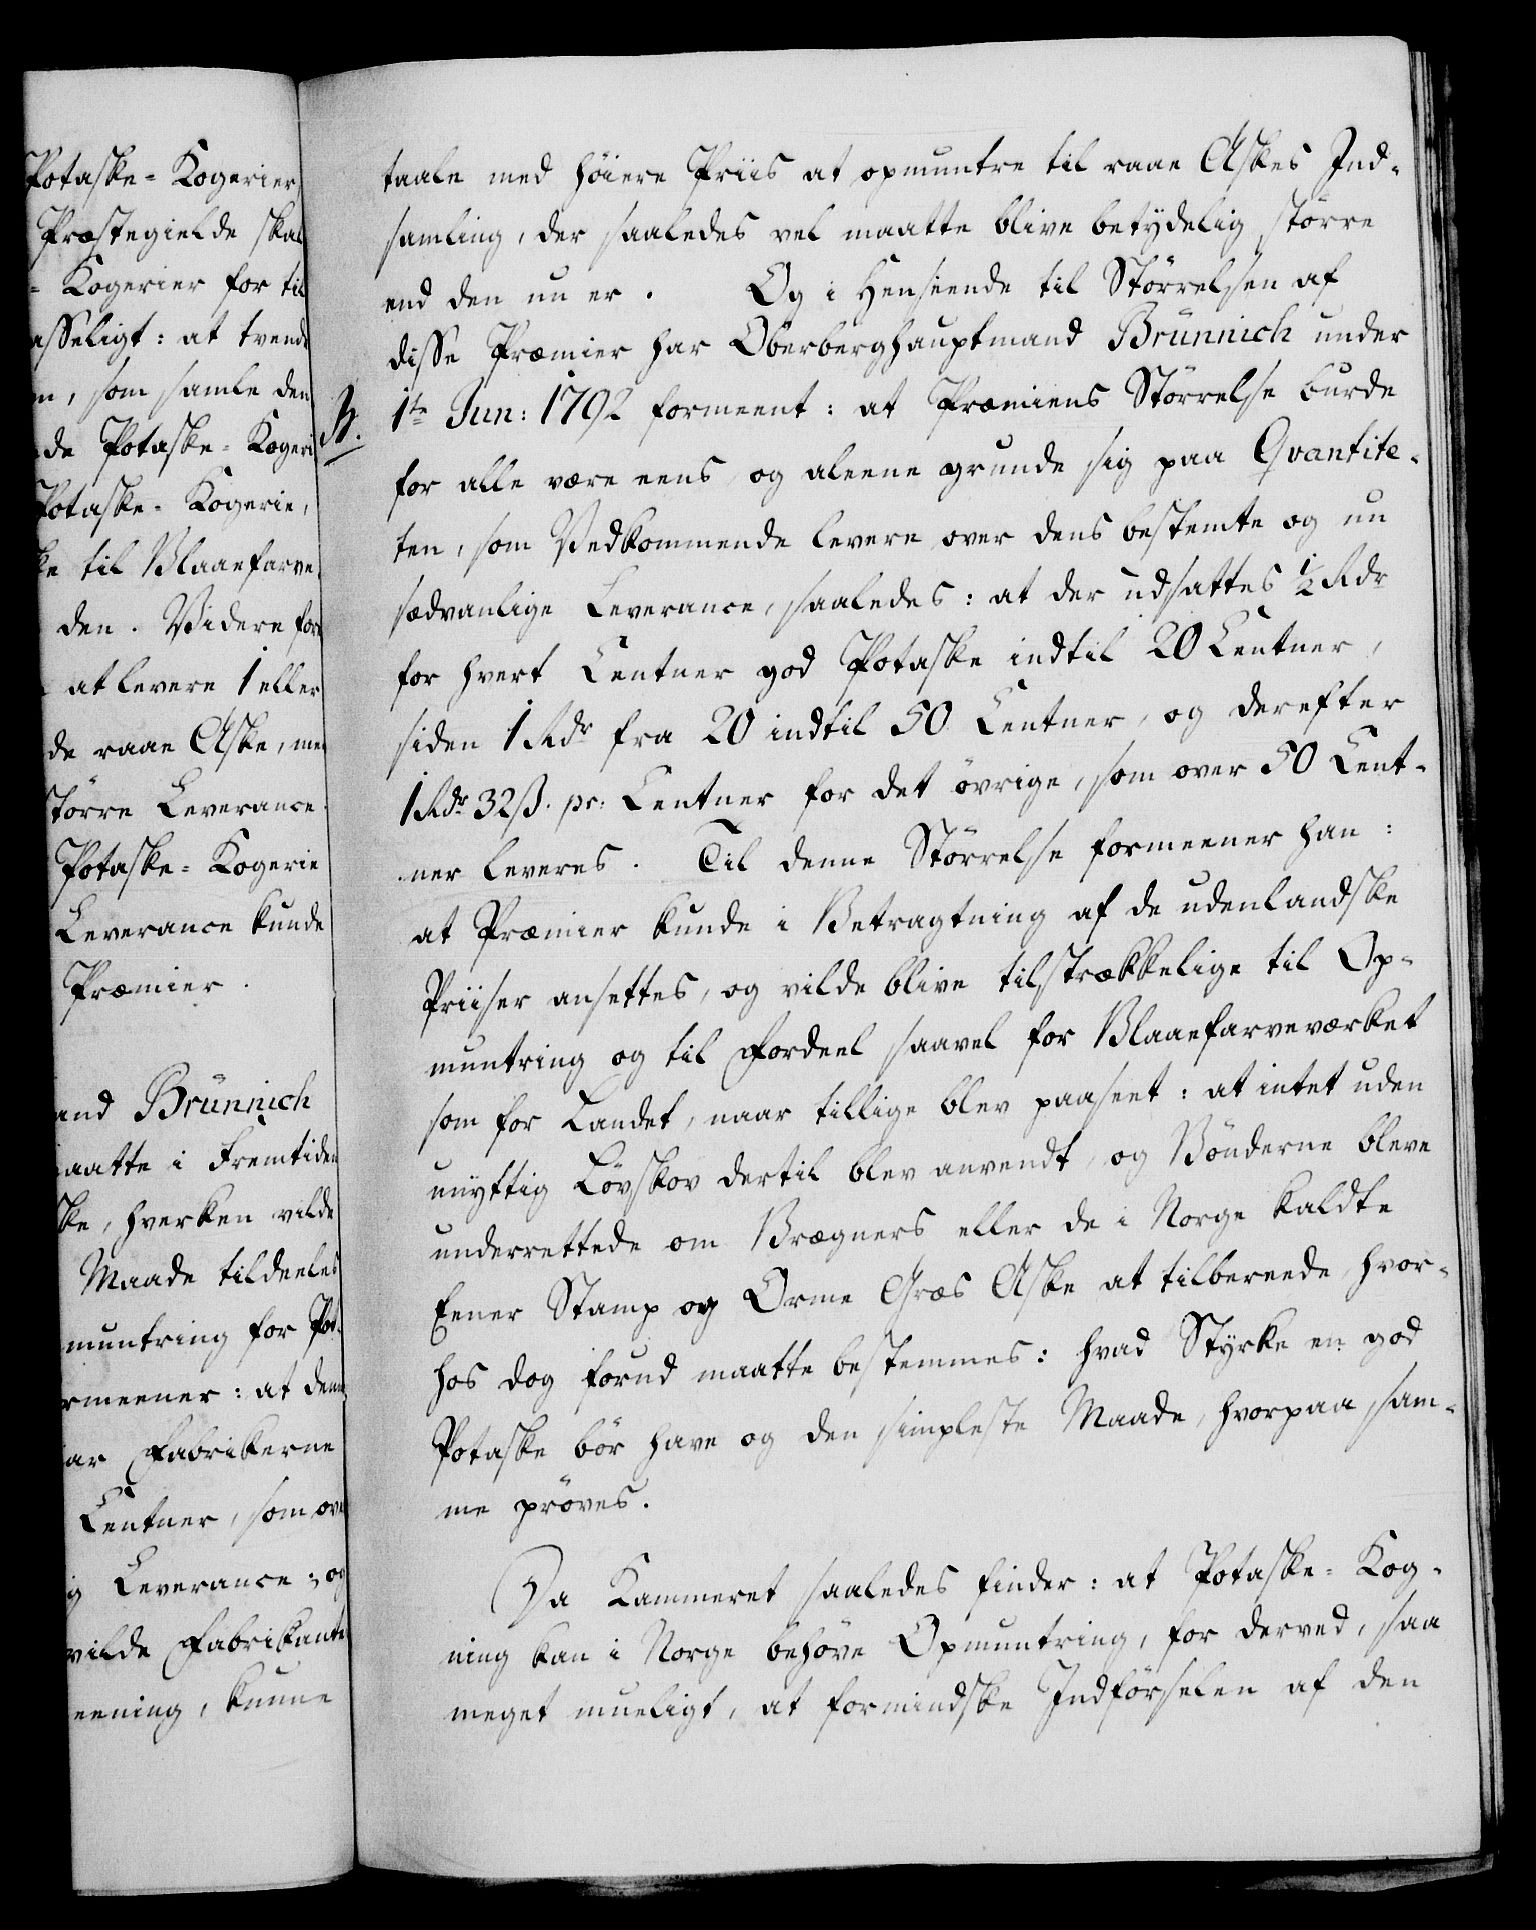 Potaske-Kogerier,
Præstegielde skal
- Kogerier for til
asseligt: at tvende
n, som samle den
de Potaske-Kogeri
Potaske-Kogerie,
ke til Blaaefarve
den. Videre for
at levere 1 eller
de raae Aske, me
större Leverance
Potaske-Kogerie
Leverance kunde
Præmier.
and Brünnich
aatte i Fremtiden
ske, hverken vilde
Maade tildeeles
muntring for Pot-
rmeener: at den
ar Fabrikerne
Centner, som ove
ig Leverance; og
vilde Fabrikante
eening, kunne
taale med höiere Priis at opmuntre til raae Askes Ind-
samling, der saaledes vel maatte blive betydelig större
end den nu er. Og i Henseende til Störrelsen af
disse Præmier har Oberberghauptmand Brünnich under
1te Jun: 1792 formeent: at Præmiens Störrelse burde
for alle være eens, og aleene grunde sig paa Qvantite-
ten, som Vedkommende levere over dens bestemte og nu
sædvanlige Leverance, saaledes: at der udsattes 1/2 Rdr
for hvert Centner god Potaske indtil 20 Centner,
siden 1 Rdr fra 20 indtil 50 Centner, og derefter
1 Rdr 32 ß. pr: Centner for det övrige, som over 50 Cent-
ner leveres. Til denne Störrelse formeener han:
at Præmier kunde i Betragtning af de udenlandske
Priiser ansettes, og vilde blive tilstrækkelige til Op-
muntring og til Fordeel saavel for Blaaefarveværket
som for Landet, naar tillige blev paaseet: at intet uden
unyttig Lövskov dertil blev anvendt, og Bönderne bleve
underrettede om Brægners eller de i Norge kaldte
Eener Stamp og Orme Græs Aske at tilbereede, hvor-
hos dog forud maatte bestemmes: hvad Styrke en god
Potaske bör have og den simpleste Maade, hvorpaa sam-
me pröves.
Da Kammeret saaledes finder: at Potaske-Kog-
ning kan i Norge behöve Opmuntring, for derved, saa
meget mueligt, at formindske Indförselen af den